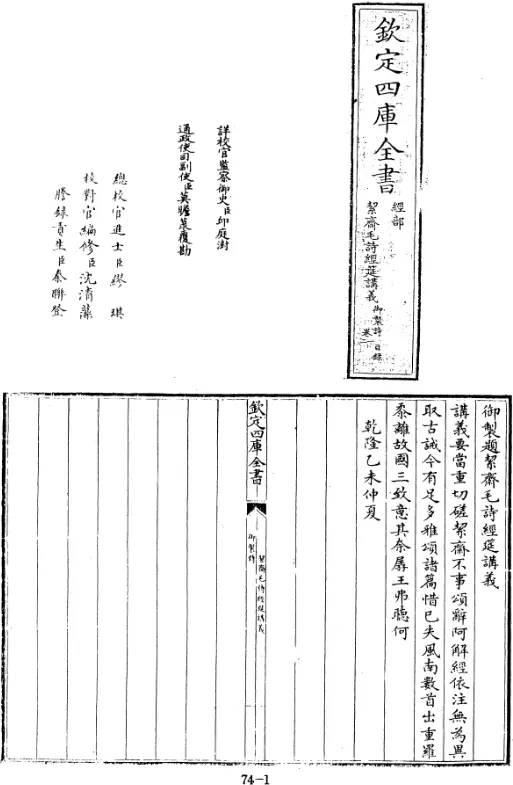 欽定四庫全書
經部
絜齋毛詩經筵講義
御製詩 目錄
卷一
詳校官監察御史臣邱庭漋
通政使司副使臣莫瞻菉覆勘
總校官進士臣繆琪
校對官編修臣沈清藻
謄錄貢生臣秦聯登
御製題絜齋毛詩經筵講義
講義要當重切磋絜齋不事頌辭阿解經依注無為異
取古誡今有足多雅頌諸篇惜已失風南數首出重羅
黍離故國三致意其奈孱王弗聽何
乾隆乙未仲夏
欽定四庫全書
絜齋毛詩經筵講義
御製詩
74-1